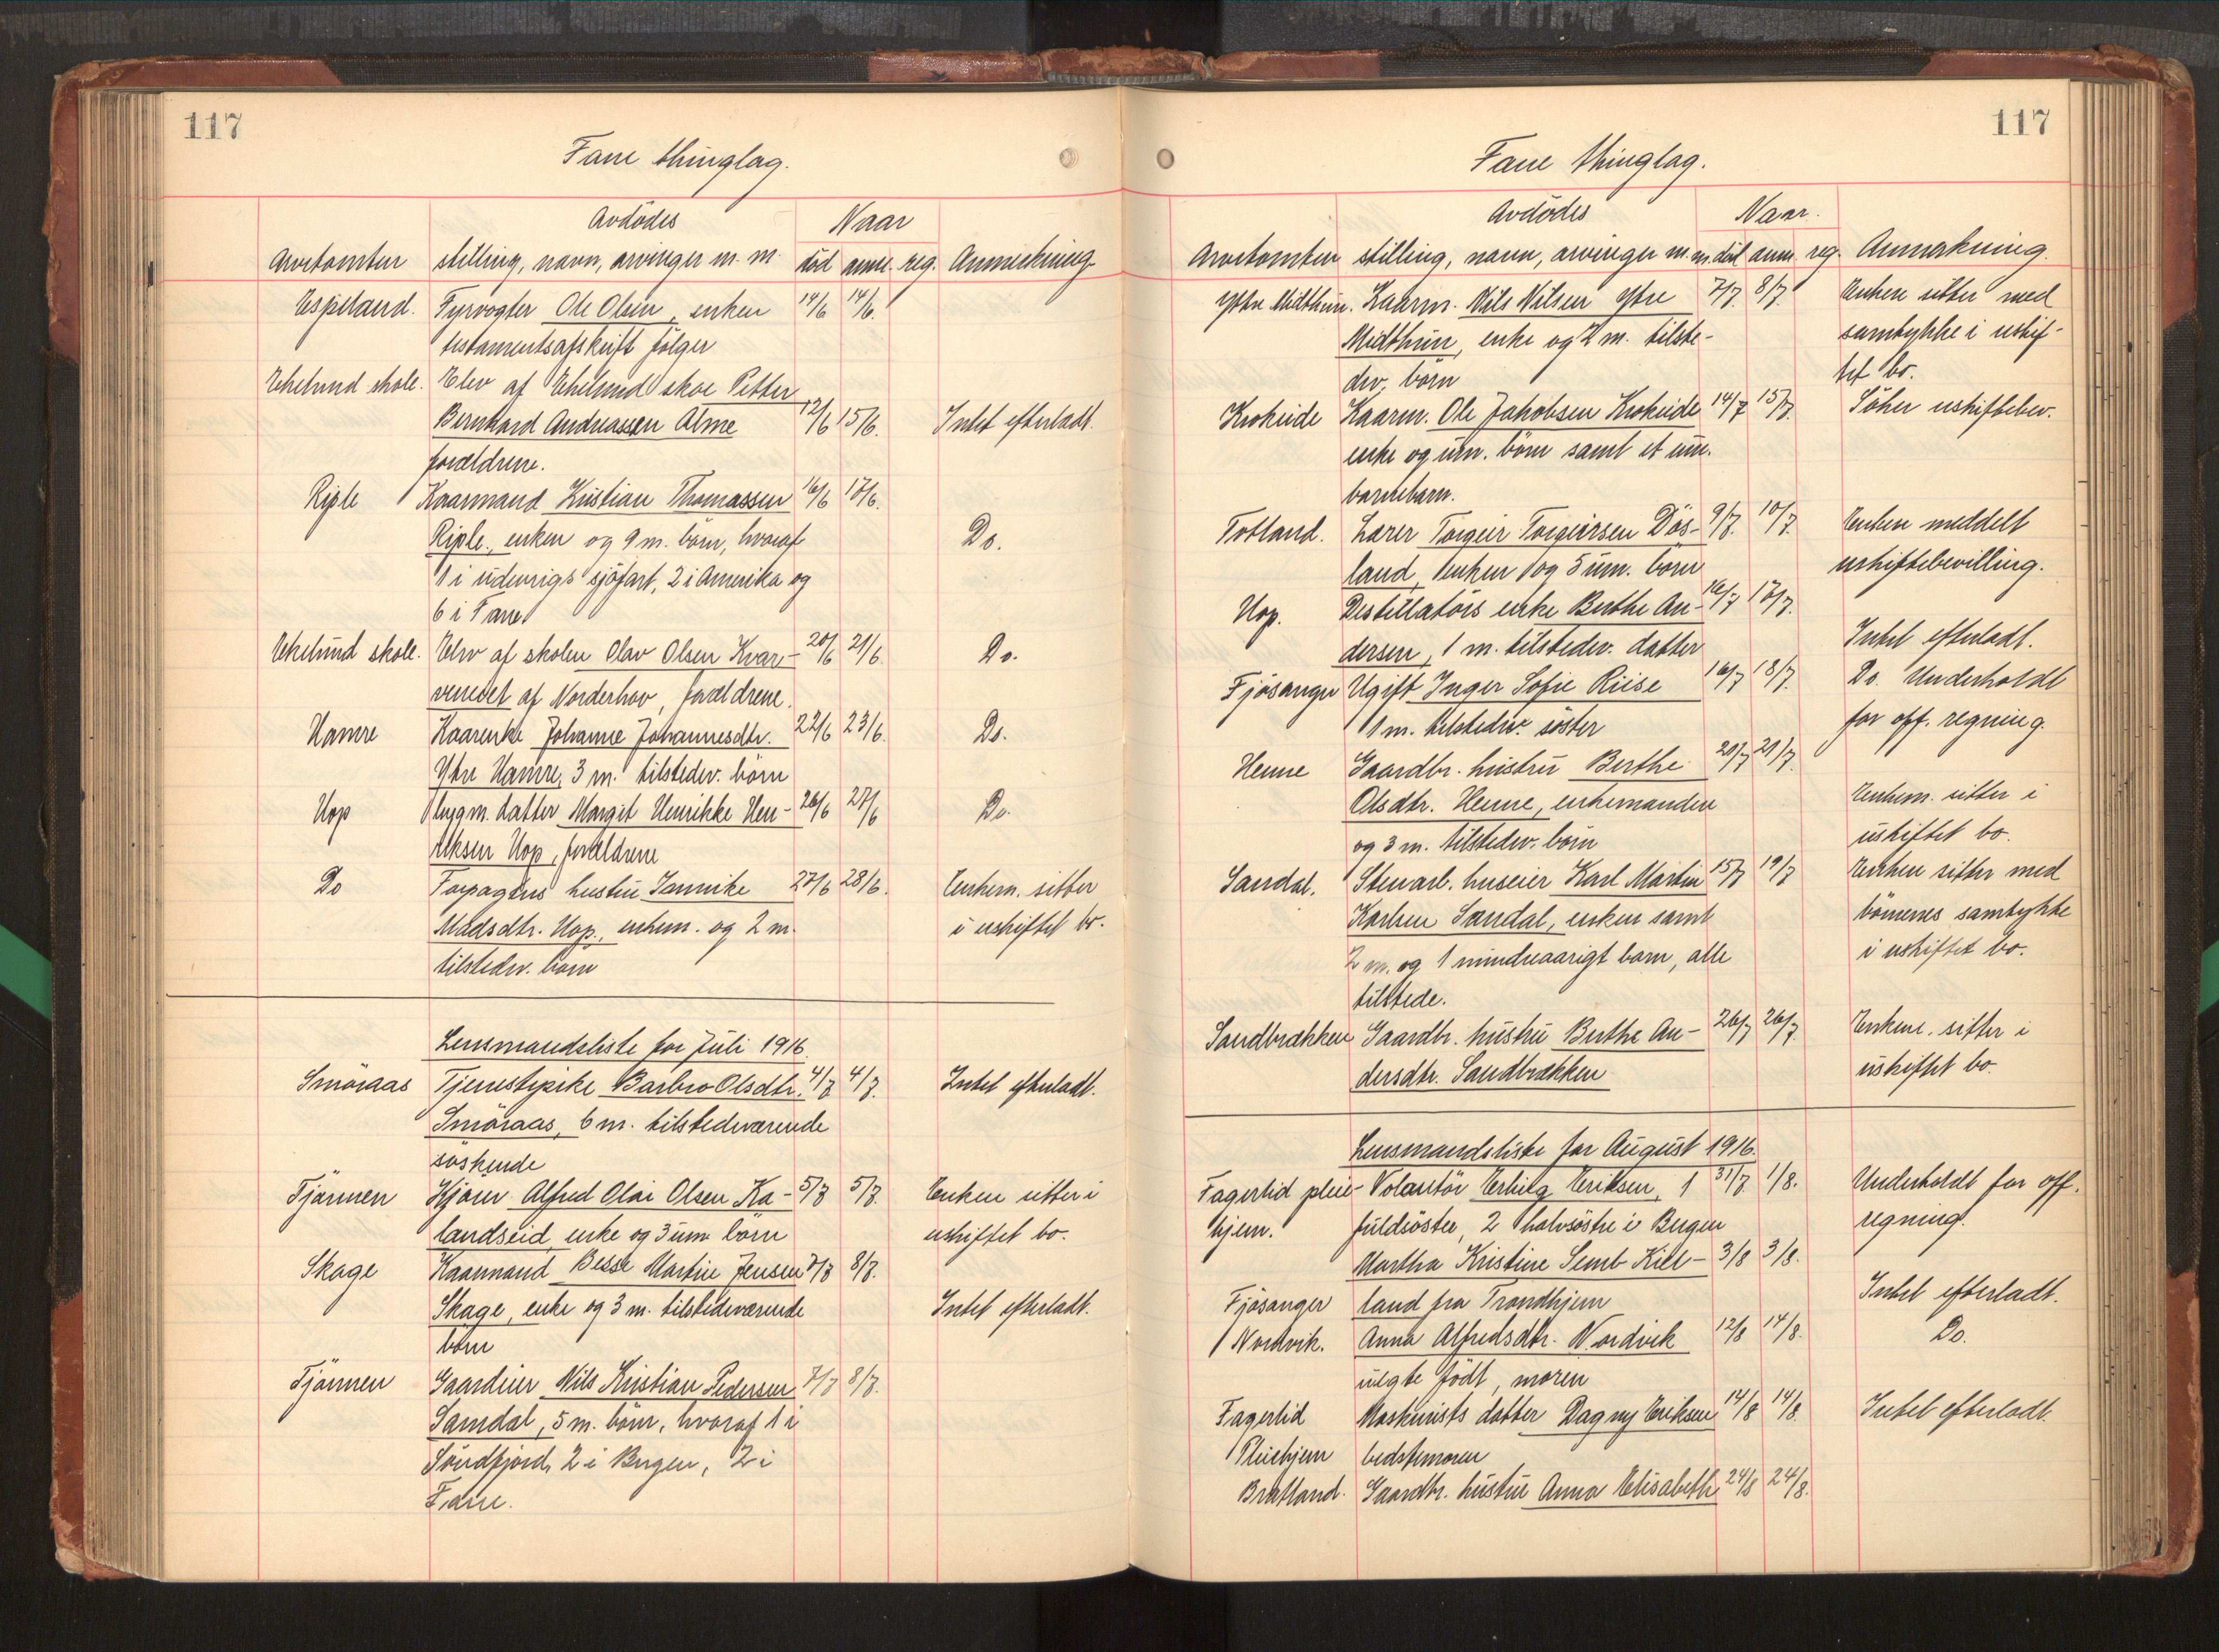 117
Fane thinglag.
Avdödes Naar
Arvetomten stilling, navn, arvinger m. m. död anm. reg. Anmerkning
Espeland. Fyrvogter Ole Olsen, enken 14/6 14/6.
testamentsafskrift fölger
Ekelund skole. Elev af Ekelund skoe Petter
Bernhard Andreassen Alme 12/6 15/6. Intet efterladt.
forældrene.
Riple Kaarmand Kristian Thomassen 16/6 17/6.
Riple, enken og 9 m. börn, hvoraf Do.
1 i udenrigs sjöfart, 2 i Amerika og
6 i Fane
Ekelund skole. Elev af skolen Olav Olsen Kvar- 20/6 21/6. Do.
venedet af Norderhov, forældrene.
Hamre Kaarenke Johanne Johannesdtr. 22/6 23/6. Do.
Ytre Hamre, 3 m. tilstedev. börn
Hop Bygm. datter Margit Henrikke Hen- 26/6 27/6 Do.
riksen Hop, forældrene
Do Forpagters hustru Jannike 27/6 28/6. Enkem. sitter
Madsdtr. Hop, enkem. og 2 m. i uskiftet bo.
tilstedev. börn
Lensmandsliste for Juli 1916.
Smöraas Tjenestepike Barbro Olsdtr. 4/7 4/7. Intet efterladt.
Smöraas, 6 m. tilstedeværende
söskende
Tjönnen Kjörer Alfred Olai Olsen Ka- 5/7 5/7. Enken sitter i
landseid, enke og 3 um. börn uskiftet bo.
Skage Kaarmand Besse Martin Jensen 7/7 8/7.
Skage, enke og 3 m. tilstedeværende Intet efterladt.
börn
Tjönnen Gaardeier Nils Kristian Pedersen 7/7 8/7.
Samdal, 5 m. börn, hvoraf 1 i
Söndfjord, 2 i Bergen, 2 i
Fane.
117
Fane thinglag.
Avdödes Naar.
Arvetomten stilling, navn, arvinger m. m. död anm. reg. Anmerkning.
Ytre Midthun. Kaarm. Nils Nilsen Ytre 7/7 8/7. Enken sitter med
Midthun, enke og 2 m. tilste- samtykke i uskif-
dev. börn tet bo.
Krokeide Kaarm. Ole Jakobsen Krokeide 14/7 15/7. Söker uskiftebev.
enke og um. börn samt et um.
barnebarn.
Totland. Lærer Torgeir Torgeirsen Dös- 9/7. 10/7. Enken meddelt
land, enken og 5 um. börn uskiftebevilling.
Hop. Destillatörs enke Berthe An- 16/7 17/7.
dersen, 1 m. tilstedev. datter Intet efterladt.
Fjösanger Ugift Inger Sofie Riise 16/7 18/7. Do. Underholdt
1 m. tilstedev. söster for off. regning.
Henne Gaardbr. hustru Berthe 20/7 21/7.
Olsdtr. Henne, enkemanden Enkem. sitter i
og 3 m. tilstedev. börn uskiftet bo.
Sandal. Stenarb. huseier Karl Martin 15/7 19/7 Enken sitter med
Karlsen Sandal, enken samt börnenes samtykke
2 m. og 1 mindreaarigt barn, alle i uskiftet bo.
tilstede.
Sandbrekken Gaardbr. hustru Berthe An- 26/7 26/7. Enkem. sitter i
dersdtr. Sandbrekken uskiftet bo.
Lensmandsliste for August 1916.
Fagerlid pleie- Volontör Erling Eriksen, 1 31/7. 1/8. Underholdt for off.
hjem. fuldsöster, 2 halvsöstre i Bergen regning.
Martha Kristine Semb Kiel- 3/8 3/8.
Fjösanger land fra Trondhjem Intet efterladt.
Nordvik. Anna Alfredsdtr. Nordvik 12/8 14/8. Do.
uegte födt, moren
Fagerlid Maskinists datter Dagny Eriksen 14/8 14/8. Intet efterladt.
Pleiehjem bedstemoren
Bratland. Gaardbr. hustru Anna Elisabeth 24/8 24/8.